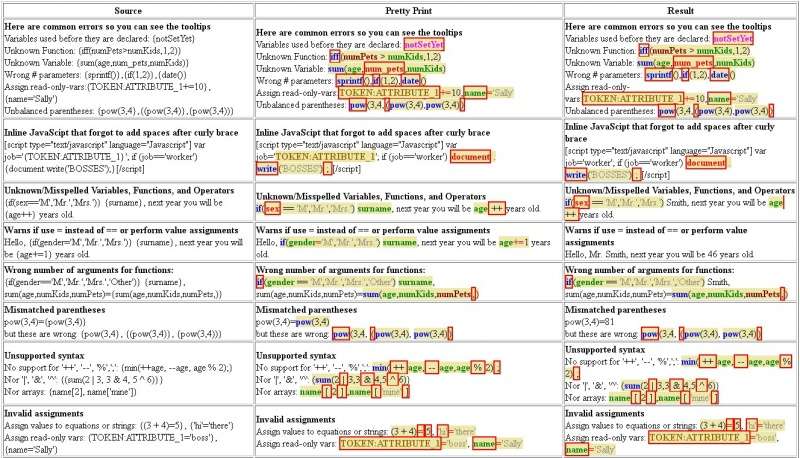 Source
Pretty Print
Result
Here are common errors so you can see the tooltips
Variables used before they are declared: {notSetYet}
Unknown Function: {iff(numPets>numKids,1,2)}
Unknown Variable: {sum(age,num_pets,numKids)}
Wrong # parameters: {sprintf()},{if(1,2)},{date()}
Assign read-only-vars:{TOKEN:ATTRIBUTE_1+=10},
{name='Sally'}
Unbalanced parentheses: {pow(3,4},{(pow(3,4)},{pow(3,4))}
Here are common errors so you can see the tooltips
Variables used before they are declared: notSetYet
Unknown Function: iff(numPets > numKids,1,2)
Unknown Variable: sum(age,num_pets,numKids)
Wrong # parameters: sprintf(),if(1,2),date()
Assign read-only-vars:TOKEN:ATTRIBUTE_1+=10,name='Sally'
Unbalanced parentheses: pow(3,4,(pow(3,4),pow(3,4))
Here are common errors so you can see the tooltips
Variables used before they are declared: notSetYet
Unknown Function: iff(numPets > numKids,1,2)
Unknown Variable: sum(age,num_pets,numKids)
Wrong # parameters: sprintf(),if(1,2),date()
Assign read-only-
vars:TOKEN:ATTRIBUTE_1+=10,name='Sally'
Unbalanced parentheses: pow(3,4,(pow(3,4),pow(3,4))
Inline JavaScipt that forgot to add spaces after curly brace
[script type="text/javascript" language="Javascript"] var
job='{TOKEN:ATTRIBUTE_1}'; if (job=='worker')
{document.write('BOSSES');}[/script]
Inline JavaScipt that forgot to add spaces after curly brace
[script type="text/javascript" language="Javascript"] var
job='TOKEN:ATTRIBUTE_1'; if (job=='worker') document.
write('BOSSES');[/script]
Inline JavaScipt that forgot to add spaces after curly
brace
[script type="text/javascript" language="Javascript"] var
job='worker'; if (job=='worker') document.
write('BOSSES');[/script]
Unknown/Misspelled Variables, Functions, and Operators
{if(sex=='M','Mr.','Mrs.')} {surname}, next year you will be
{age++} years old.
Unknown/Misspelled Variables, Functions, and Operators
if(sex == 'M','Mr.','Mrs.') surname, next year you will be age ++ years old.
Unknown/Misspelled Variables, Functions, and Operators
if(sex == 'M','Mr.','Mrs.') Smith, next year you will be age
++ years old.
Warns if use = instead of == or perform value assignments
Hello, {if(gender='M','Mr.','Mrs.')} {surname}, next year you will
be {age+=1} years old.
Warns if use = instead of == or perform value assignments
Hello, if(gender='M','Mr.','Mrs.') surname, next year you will be age+=1 years
old.
Warns if use = instead of == or perform value
assignments
Hello, Mr. Smith, next year you will be 46 years old.
Wrong number of arguments for functions:
{if(gender=='M','Mr.','Mrs.','Other')} {surname},
sum(age,numKids,numPets)={sum(age,numKids,numPets,)}
Wrong number of arguments for functions:
if(gender == 'M','Mr.','Mrs.','Other') surname,
sum(age,numKids,numPets)=sum(age,numKids,numPets,)
Wrong number of arguments for functions:
if(gender == 'M','Mr.','Mrs.','Other') Smith,
sum(age,numKids,numPets)=sum(age,numKids,numPets,)
Mismatched parentheses
pow(3,4)={pow(3,4)}
but these are wrong: {pow(3,4}, {(pow(3,4)}, {pow(3,4))}
Mismatched parentheses
pow(3,4)=pow(3,4)
but these are wrong: pow(3,4, (pow(3,4), pow(3,4))
Mismatched parentheses
pow(3,4)=81
but these are wrong: pow(3,4, (pow(3,4), pow(3,4))
Unsupported syntax
No support for '++', '--', '%',';': {min(++age, --age, age % 2);}
Nor '|', '&', '^': {(sum(2 | 3, 3 & 4, 5 ^ 6)}
Nor arrays: {name[2], name['mine']}
Unsupported syntax
No support for '++', '--', '%',';': min( ++ age, -- age,age % 2) ;
Nor '|', '&', '^': (sum(2 | 3,3 & 4,5 ^ 6))
Nor arrays: name [ 2 ],name [ 'mine' ]
Unsupported syntax
No support for '++', '--', '%',';': min( ++ age, -- age,age %
2) ;
Nor '|', '&', '^': (sum(2 | 3,3 & 4,5 ^ 6))
Nor arrays: name [ 2 ],name [ 'mine' ]
Invalid assignments
Assign values to equations or strings: {(3 + 4)=5}, {'hi'='there'}
Assign read-only vars: {TOKEN:ATTRIBUTE_1='boss'},
{name='Sally'}
Invalid assignments
Assign values to equations or strings: (3 + 4)= 5, 'hi'='there'
Assign read-only vars: TOKEN:ATTRIBUTE_1='boss', name='Sally'
Invalid assignments
Assign values to equations or strings: (3 + 4)= 5, 'hi'='there'
Assign read-only vars: TOKEN:ATTRIBUTE_1='boss',
name='Sally'